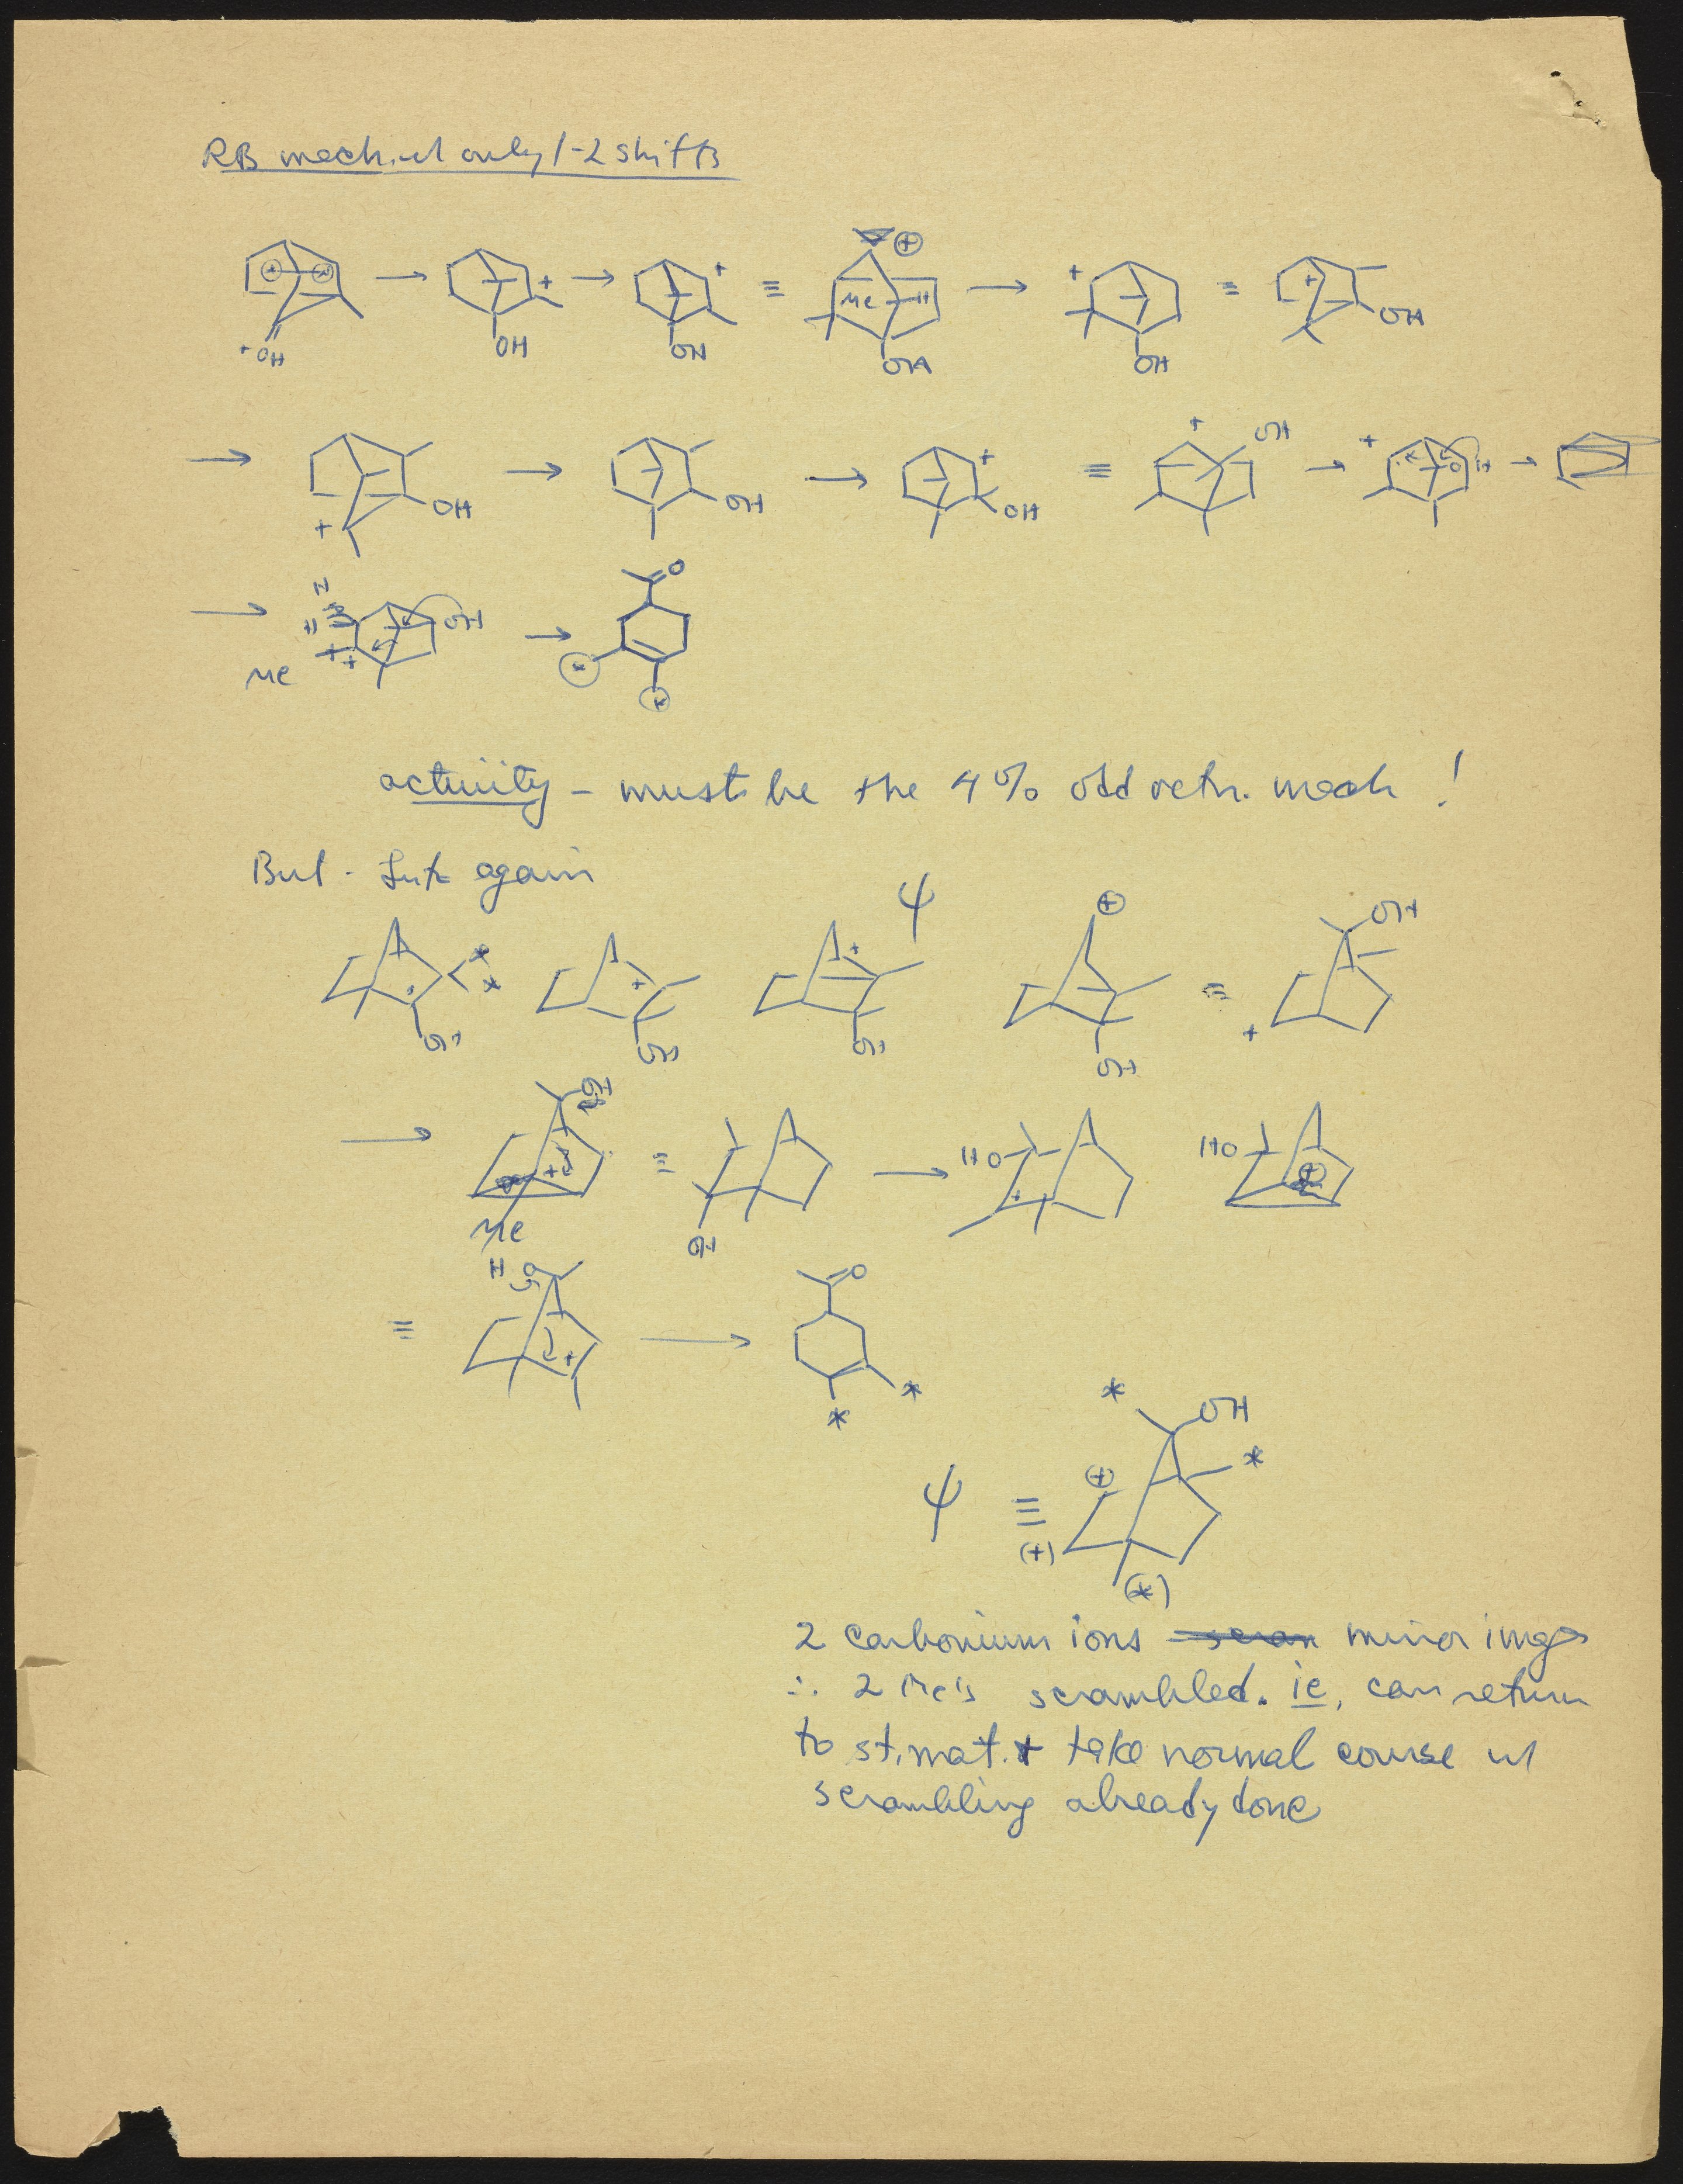 RB mech. w/ only 1-2 shifts
+ +OH
+ OH
+ OH
≡ + Me H OH
+ OH
≡ + OH
+ OH
OH
+ OH
≡ + OH
+ O H
H H + + Me OH
O * *
activity - must be the 4% odd retn. mech !
But - again
ψ
* * OH
+ OH
+ OH
+ OH
≡ + OH
OH + Me
≡ OH
HO +
HO +
≡ H O +
O * *
ψ ≡ * OH * (+) (+) (*)
2 carbonium ions mirror imgs
∴ 2 Me's scrambled. ie, can return
to st. mat. + take normal course w/
scrambling already done